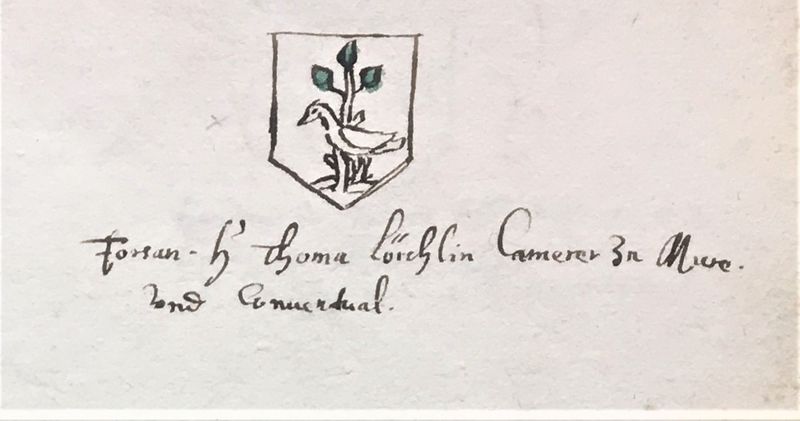 Forsan. H' Thoma Lörchlin Camerer zu Mure.
vnd Conuentual.